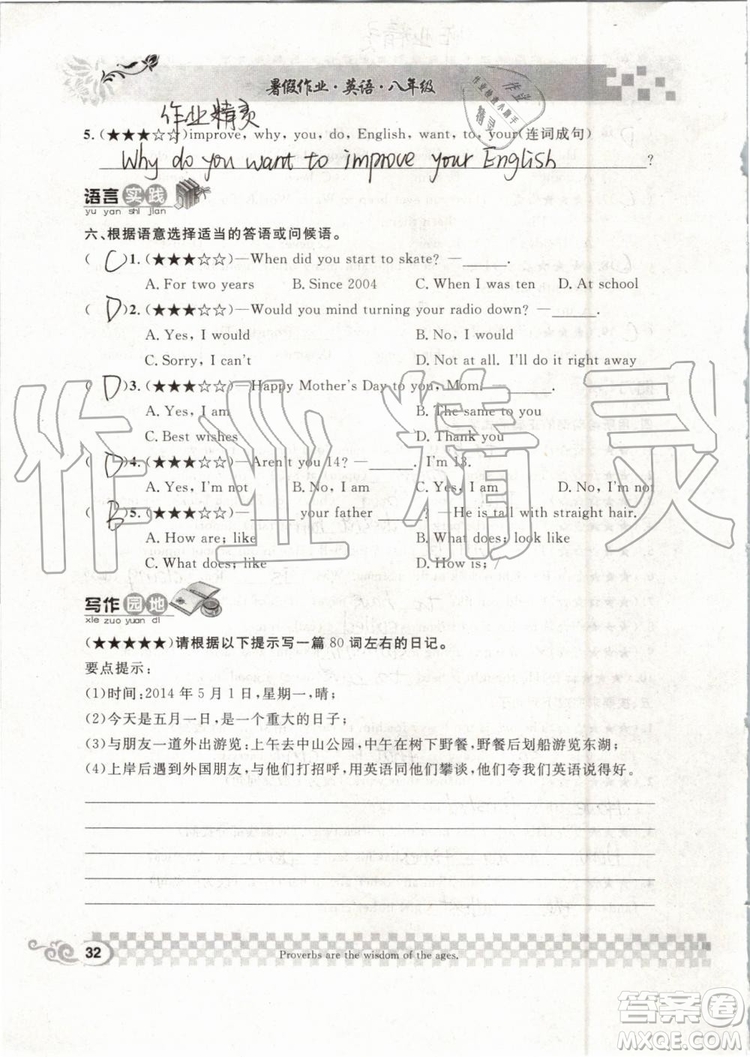 暑假作业·英语·八年级
作业精灵
5. (★★★☆☆)improve, why, you, do, English, want, to, your(连词成句)
Why do you want to improve your English ?
语言实践
yu yan shi jian
六、根据语意选择适当的答语或问候语。
( C )1. (★★★☆☆)—When did you start to skate? —____.
A. For two years B. Since 2004 C. When I was ten D. At school
( D )2. (★★★☆☆)—Would you mind turning your radio down? —____.
A. Yes, I would B. No, I would
C. Sorry, I can't D. Not at all. I'll do it right away
( D )3. (★★★☆☆)—Happy Mother's Day to you, Mom. —____.
A. Yes, I am B. The same to you
C. Best wishes D. Thank you
( D )4. (★★★☆☆)—Aren't you 14? —____. I'm 13.
A. Yes, I'm not B. No, I am C. Yes, I am D. No, I'm not
( B )5. (★★★☆☆)—____ your father ____? —He is tall with straight hair.
A. How are; like B. What does; look like
C. What does; like D. How is; /
写作园地
xie zuo yuan di
(★★★★★)请根据以下提示写一篇 80 词左右的日记。
要点提示:
(1)时间:2014 年 5 月 1 日,星期一,晴;
(2)今天是五月一日,是一个重大的日子;
(3)与朋友一道外出游览:上午去中山公园,中午在树下野餐,野餐后划船游览东湖;
(4)上岸后遇到外国朋友,与他们打招呼,用英语同他们攀谈,他们夸我们英语说得好。
作业精灵
32
Proverbs are the wisdom of the ages.
答案圈
MXQE.COM